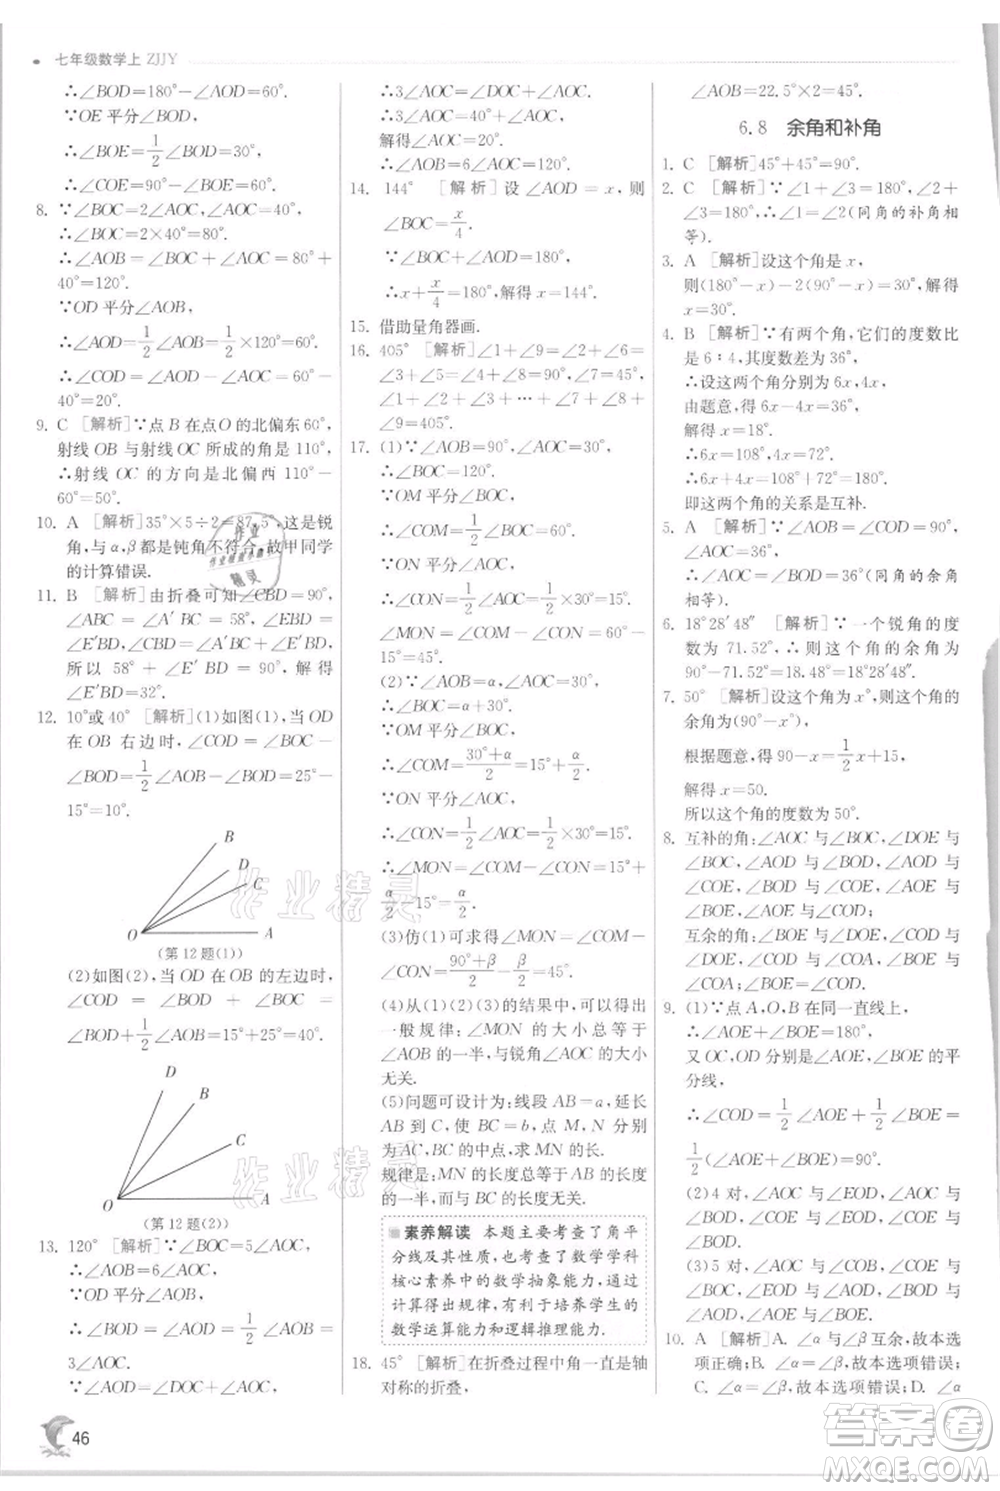 七年级数学上 ZJJY
∴∠BOD=180°-∠AOD=60°.
∵OE 平分∠BOD,
∴∠BOE=1/2∠BOD=30°,
∴∠COE=90°-∠BOE=60°.
8. ∵∠BOC=2∠AOC,∠AOC=40°,
∴∠BOC=2×40°=80°.
∴∠AOB=∠BOC+∠AOC=80°+
40°=120°.
∵OD 平分∠AOB,
∴∠AOD=1/2∠AOB=1/2×120°=60°.
∴∠COD=∠AOD-∠AOC=60°-
40°=20°.
9. C [解析]∵点 B 在点O 的北偏东60°,
射线 OB 与射线 OC 所成的角是 110°,
∴射线 OC 的方向是北偏西 110°-
60°=50°.
10. A [解析]35°×5÷2=87.5°,这是锐
角,与 α,β 都是钝角不符合,故甲同学
的计算错误.
11. B [解析]由折叠可知∠CBD=90°,
∠ABC=∠A′BC=58°,∠EBD=
∠E′BD,∠CBD=∠A′BC+∠E′BD,
所以 58°+∠E′BD=90°,解得
∠E′BD=32°.
12. 10°或 40° [解析](1)如图(1),当 OD
在 OB 右边时,∠COD=∠BOC-
∠BOD=1/2∠AOB-∠BOD=25°-
15°=10°.
B
D
C
O
A
(第 12 题(1))
(2)如图(2),当 OD 在 OB 的左边时,
∠COD=∠BOD+∠BOC=
∠BOD+1/2∠AOB=15°+25°=40°.
D
B
C
O
A
(第 12 题(2))
13. 120° [解析]∵∠BOC=5∠AOC,
∴∠AOB=6∠AOC.
∵OD 平分∠AOB,
∴∠BOD=∠AOD=1/2∠AOB=
3∠AOC.
∴∠AOD=∠DOC+∠AOC,
∴3∠AOC=∠DOC+∠AOC.
∴3∠AOC=40°+∠AOC,
解得∠AOC=20°.
∴∠AOB=6∠AOC=120°.
14. 144° [解析]设∠AOD=x,则
∠BOC=x/4.
∵∠AOD+∠BOC=180°,
∴x+x/4=180°,解得 x=144°.
15. 借助量角器画.
16. 405° [解析]∠1+∠9=∠2+∠6=
∠3+∠5=∠4+∠7=∠8+∠8=
90°,∠1+∠2+∠3+…+∠8+
∠9=405°.
17. (1)∵∠AOB=90°,∠AOC=30°,
∴∠BOC=120°.
∵OM 平分∠BOC,
∴∠COM=1/2∠BOC=60°.
∵ON 平分∠AOC,
∴∠CON=1/2∠AOC=1/2×30°=15°.
∠MON=∠COM-∠CON=60°-
15°=45°.
(2)∵∠AOB=α,∠AOC=30°,
∴∠BOC=α+30°.
∵OM 平分∠BOC,
∴∠COM=(30°+α)/2=15°+α/2.
∵ON 平分∠AOC,
∴∠CON=1/2∠AOC=1/2×30°=15°.
∴∠MON=∠COM-∠CON=15°+
α/2-15°=α/2.
(3)仿(1)可求得∠MON=∠COM-
∠CON=(90°+β)/2-β/2=45°.
(4)从(1)(2)(3)的结果中,可以得出
一般规律:∠MON 的大小总等于
∠AOB 的一半,与锐角∠AOC 的大小
无关.
(5)问题可设计为:线段 AB=a,延长
AB 到 C,使 BC=b,点 M,N 分别
为 AC,BC 的中点,求 MN 的长.
规律是:MN 的长度总等于 AB 的长度
的一半,而与 BC 的长度无关.
素养解读 本题主要考查了角平
分线及其性质,也考查了数学学科
核心素养中的数学抽象能力,通过
计算得出规律,有利于培养学生的
数学运算能力和逻辑推理能力.
18. 45° [解析]在折叠过程中角一直是轴
对称的折叠,
∠AOB=22.5°×2=45°.
6.8 余角和补角
1. C [解析]45°+45°=90°.
2. C [解析]∵∠1+∠2=180°,∠1+
∠3=180°,∴∠2=∠3(同角的补角相
等).
3. A [解析]设这个角是 x,
则(180°-x)-2(90°-x)=30°,
解得 x=30°.
4. B [解析]∵有两个角,它们的度数比
是 6∶4,其度数差为 36°,
∴设这两个角分别为 6x,4x,
由题意,得 6x-4x=36°,
解得 x=18°.
∴6x=108°,4x=72°.
∴6x+4x=108°+72°=180°.
即这两个角的关系是互补.
5. A [解析]∵∠AOB=∠COD=90°,
∠AOC=36°,
∴∠BOD=∠AOC=36°(同角的余角
相等).
6. 18°28′48″ [解析]∵一个锐角的度
数为 71.52°,∴这个角的余角为
90°-71.52°=18.48°=18°28′48″.
7. 50° [解析]设这个角 x°,则这个角的
余角为(90°-x°).
根据题意,得 90-x=1/2x+15,
解得 x=50.
所以这个角的度数为 50°.
8. 互补的角:∠AOC 与∠BOC,∠DOE 与
∠BOC,∠AOD 与∠BOD,∠AOE 与
∠BOE,∠COE 与∠AOD,∠AOC 与
∠COA;
互余的角:∠DOE 与∠EOB,∠AOC 与
∠DOE,∠COD 与∠COA,∠COD 与
∠BOE.
9. (1)∵点 A,O,B 在同一直线上,
∴∠AOE+∠BOE=180°,
又 OC,OD 分别是∠AOE,∠BOE 的平
分线,
∴∠COD=1/2∠AOE+1/2∠BOE=
1/2(∠AOE+∠BOE)=90°.
(2)4 对,∠AOC 与∠EOD,∠AOC 与
∠BOD,∠COE 与∠EOD,∠COE 与
∠BOD.
(3)5 对,∠AOC 与∠BOC,∠COE 与
∠BOC,∠AOD 与∠BOD,∠AOD 与
∠EOD,∠AOE 与∠BOE.
10. A [解析]A. ∠α 与∠β 互余,故本选
项正确;B. ∠α=∠β,故本选项错误;
C. ∠α=∠β,故本选项错误;D. ∠α 与
46
作业精灵
作业精灵
答案卷
MXQE.COM